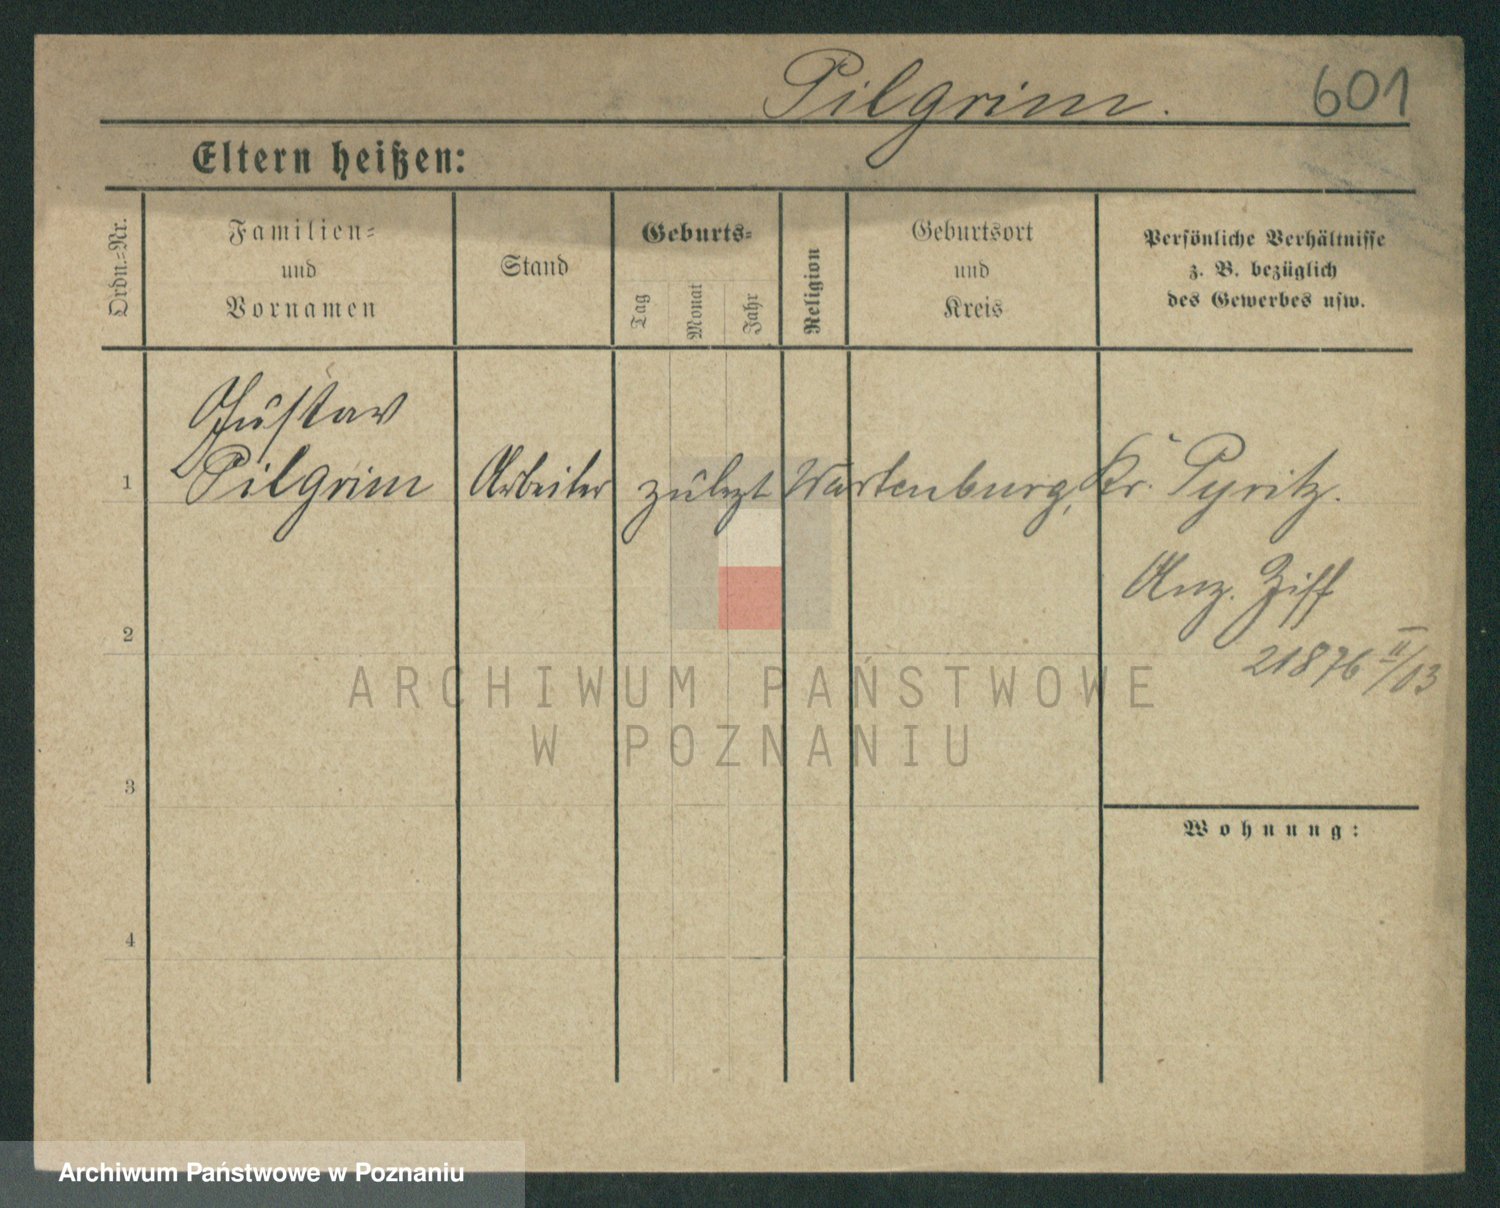 Pilgrim. 601
Eltern heißen:
Ordn.=Nr.
Familien=
und
Vornamen
Stand
Geburts=
Tag
Monat
Jahr
Religion
Geburtsort
und
Kreis
Persönliche Verhältnisse
z. B. bezüglich
des Gewerbes usw.
Gustav
1 Pilgrim Arbeiter zuletzt Wartenburg, Kr. Pyritz.
Anz. Ziff
2
21876 II/03
ARCHIWUM PAŃSTWOWE
W POZNANIU
3
Wohnung:
4
Archiwum Państwowe w Poznaniu